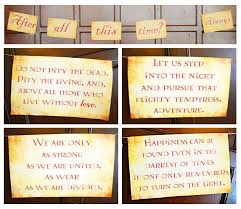 After all this time? Always
DO NOT PITY THE DEAD,
PITY THE LIVING, AND,
ABOVE ALL THOSE WHO
LIVE WITHOUT love.
LET US STEP
INTO THE NIGHT
AND PURSUE THAT
FLIGHTY TEMPTRESS,
ADVENTURE.
WE ARE ONLY
AS STRONG
AS WE ARE UNITED,
AS WEAK
AS WE ARE DIVIDED.
HAPPINESS CAN BE
FOUND EVEN IN THE
DARKEST OF TIMES
IF ONE ONLY REMEMBERS
TO TURN ON THE LIGHT.